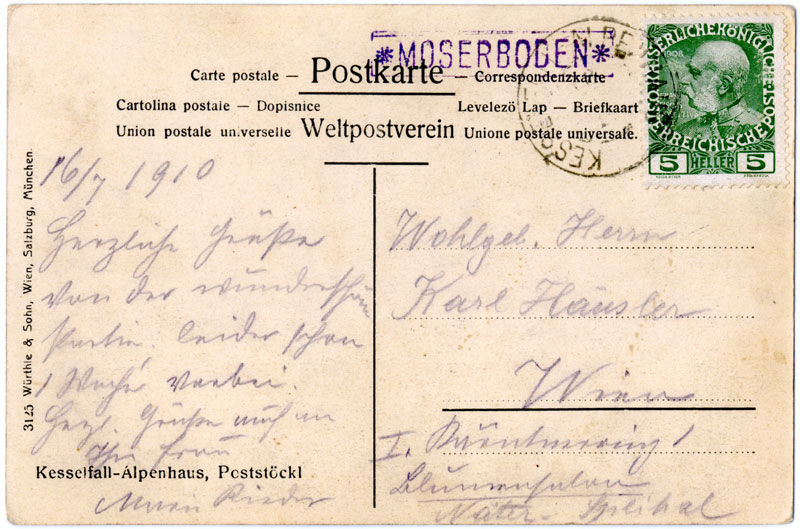 *MOSERBODEN*
Carte postale — Postkarte — Correspondenzkarte
Cartolina postale — Dopisnice Levelező Lap — Briefkaart
Union postale universelle Weltpostverein Unione postale universale.
KAISERLICHE KÖNIGLICHE ÖSTERREICHISCHE POST
1908
5 HELLER 5
16/7 1910
Herzliche Grüße
von der wunderschön
Partie, leider schon
1 Woche vorbei.
Herzl. Grüße auch an
Ihre Frau
Rieder
Kesselfall-Alpenhaus, Poststöckl
3125 Würthle & Sohn, Wien, Salzburg, München.
Wohlgeb. Herrn
Karl Häusler
Wien
I. Kärntnerring 1
Blumensalon